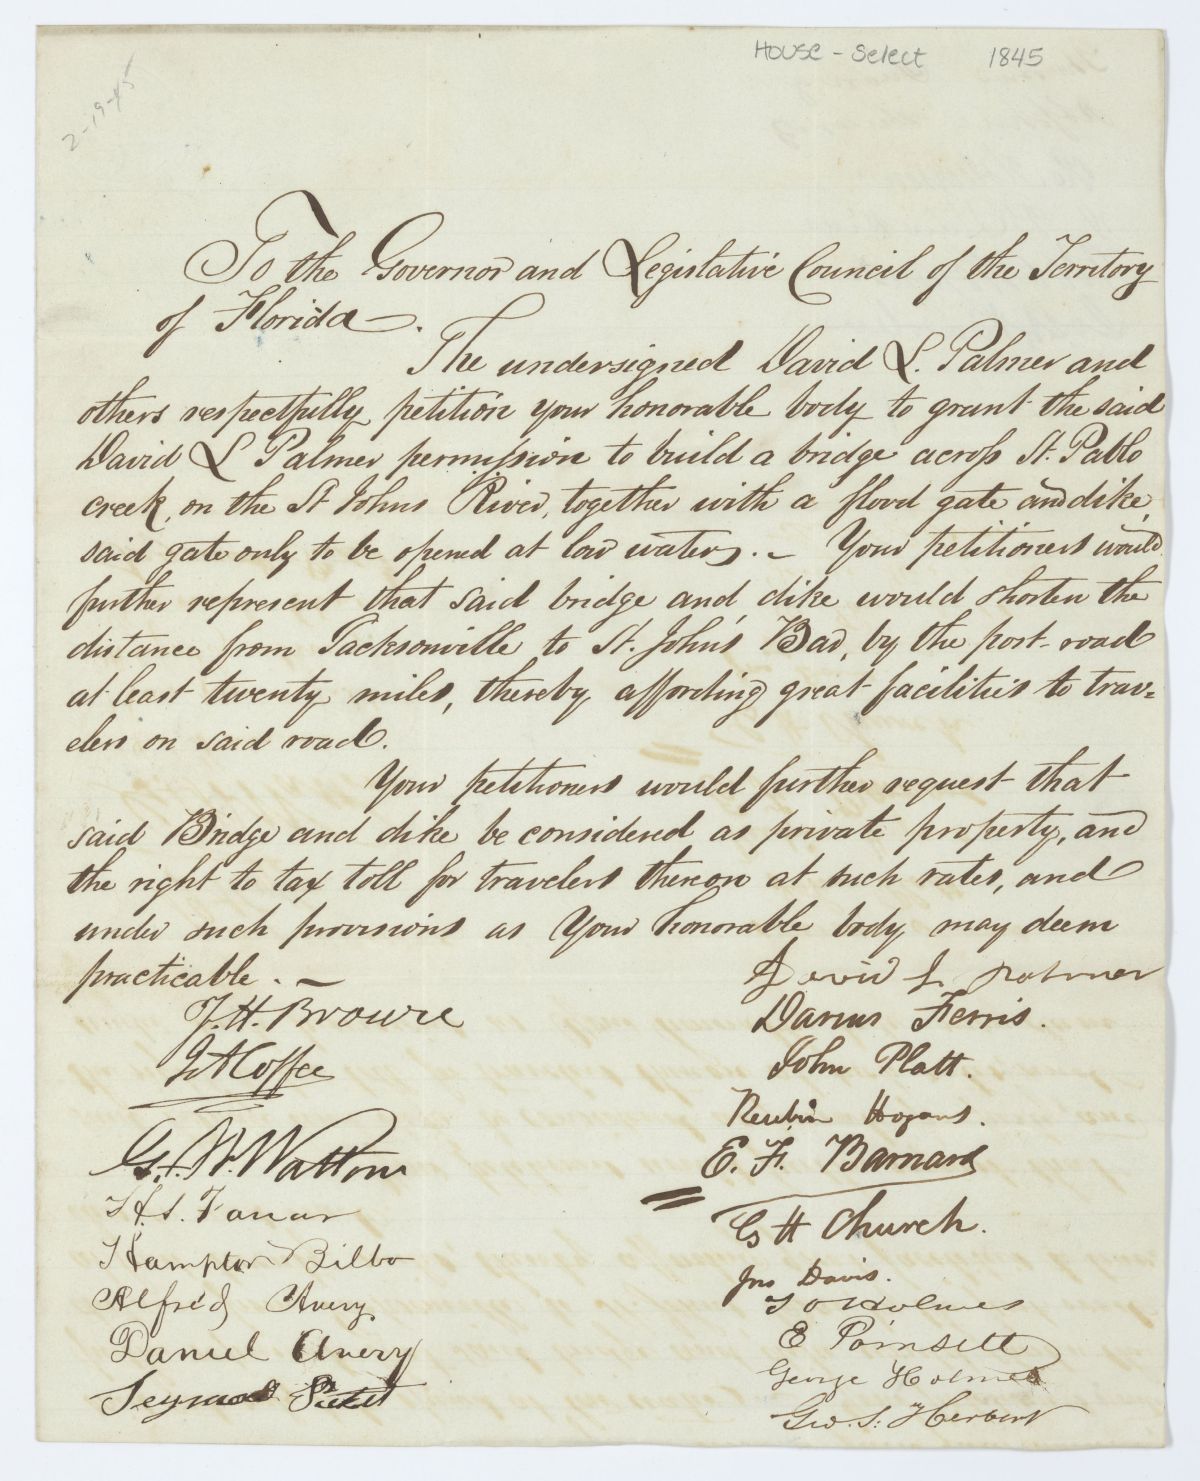 House - Select 1845
2-19-45
To the Governor and Legislative Council of the Territory
of Florida.
The undersigned David L. Palmer and
others respectfully petition your honorable body to grant the said
David L Palmer permission to build a bridge across St. Pablo
creek, on the St Johns River, together with a flood gate and dike,
said gate only to be opened at low waters. - Your petitioners would
further represent that said bridge and dike would shorten the
distance from Jacksonville to St. John's Bar, by the post-road
at least twenty miles, thereby affording great facilities to trav=
elers on said road.
Your petitioners would further request that
said Bridge and dike be considered as private property, and
the right to tax toll for travelers thereon at such rates, and
under such provisions as Your honorable body may deem
practicable. -
David L Palmer
T. H. Browne
Darius Ferris.
J A Coffee
John Platt.
Reubin Hogans.
G. W. Watton
E. F. Barnard
H. S. Farrar
G H Church.
Hampton Bilbo
Jno Davis.
Alfred Avery
T O Holmes
Daniel Avery
E Poinsett
Seymore Picket
George Holmes
Geo. S. Herbert